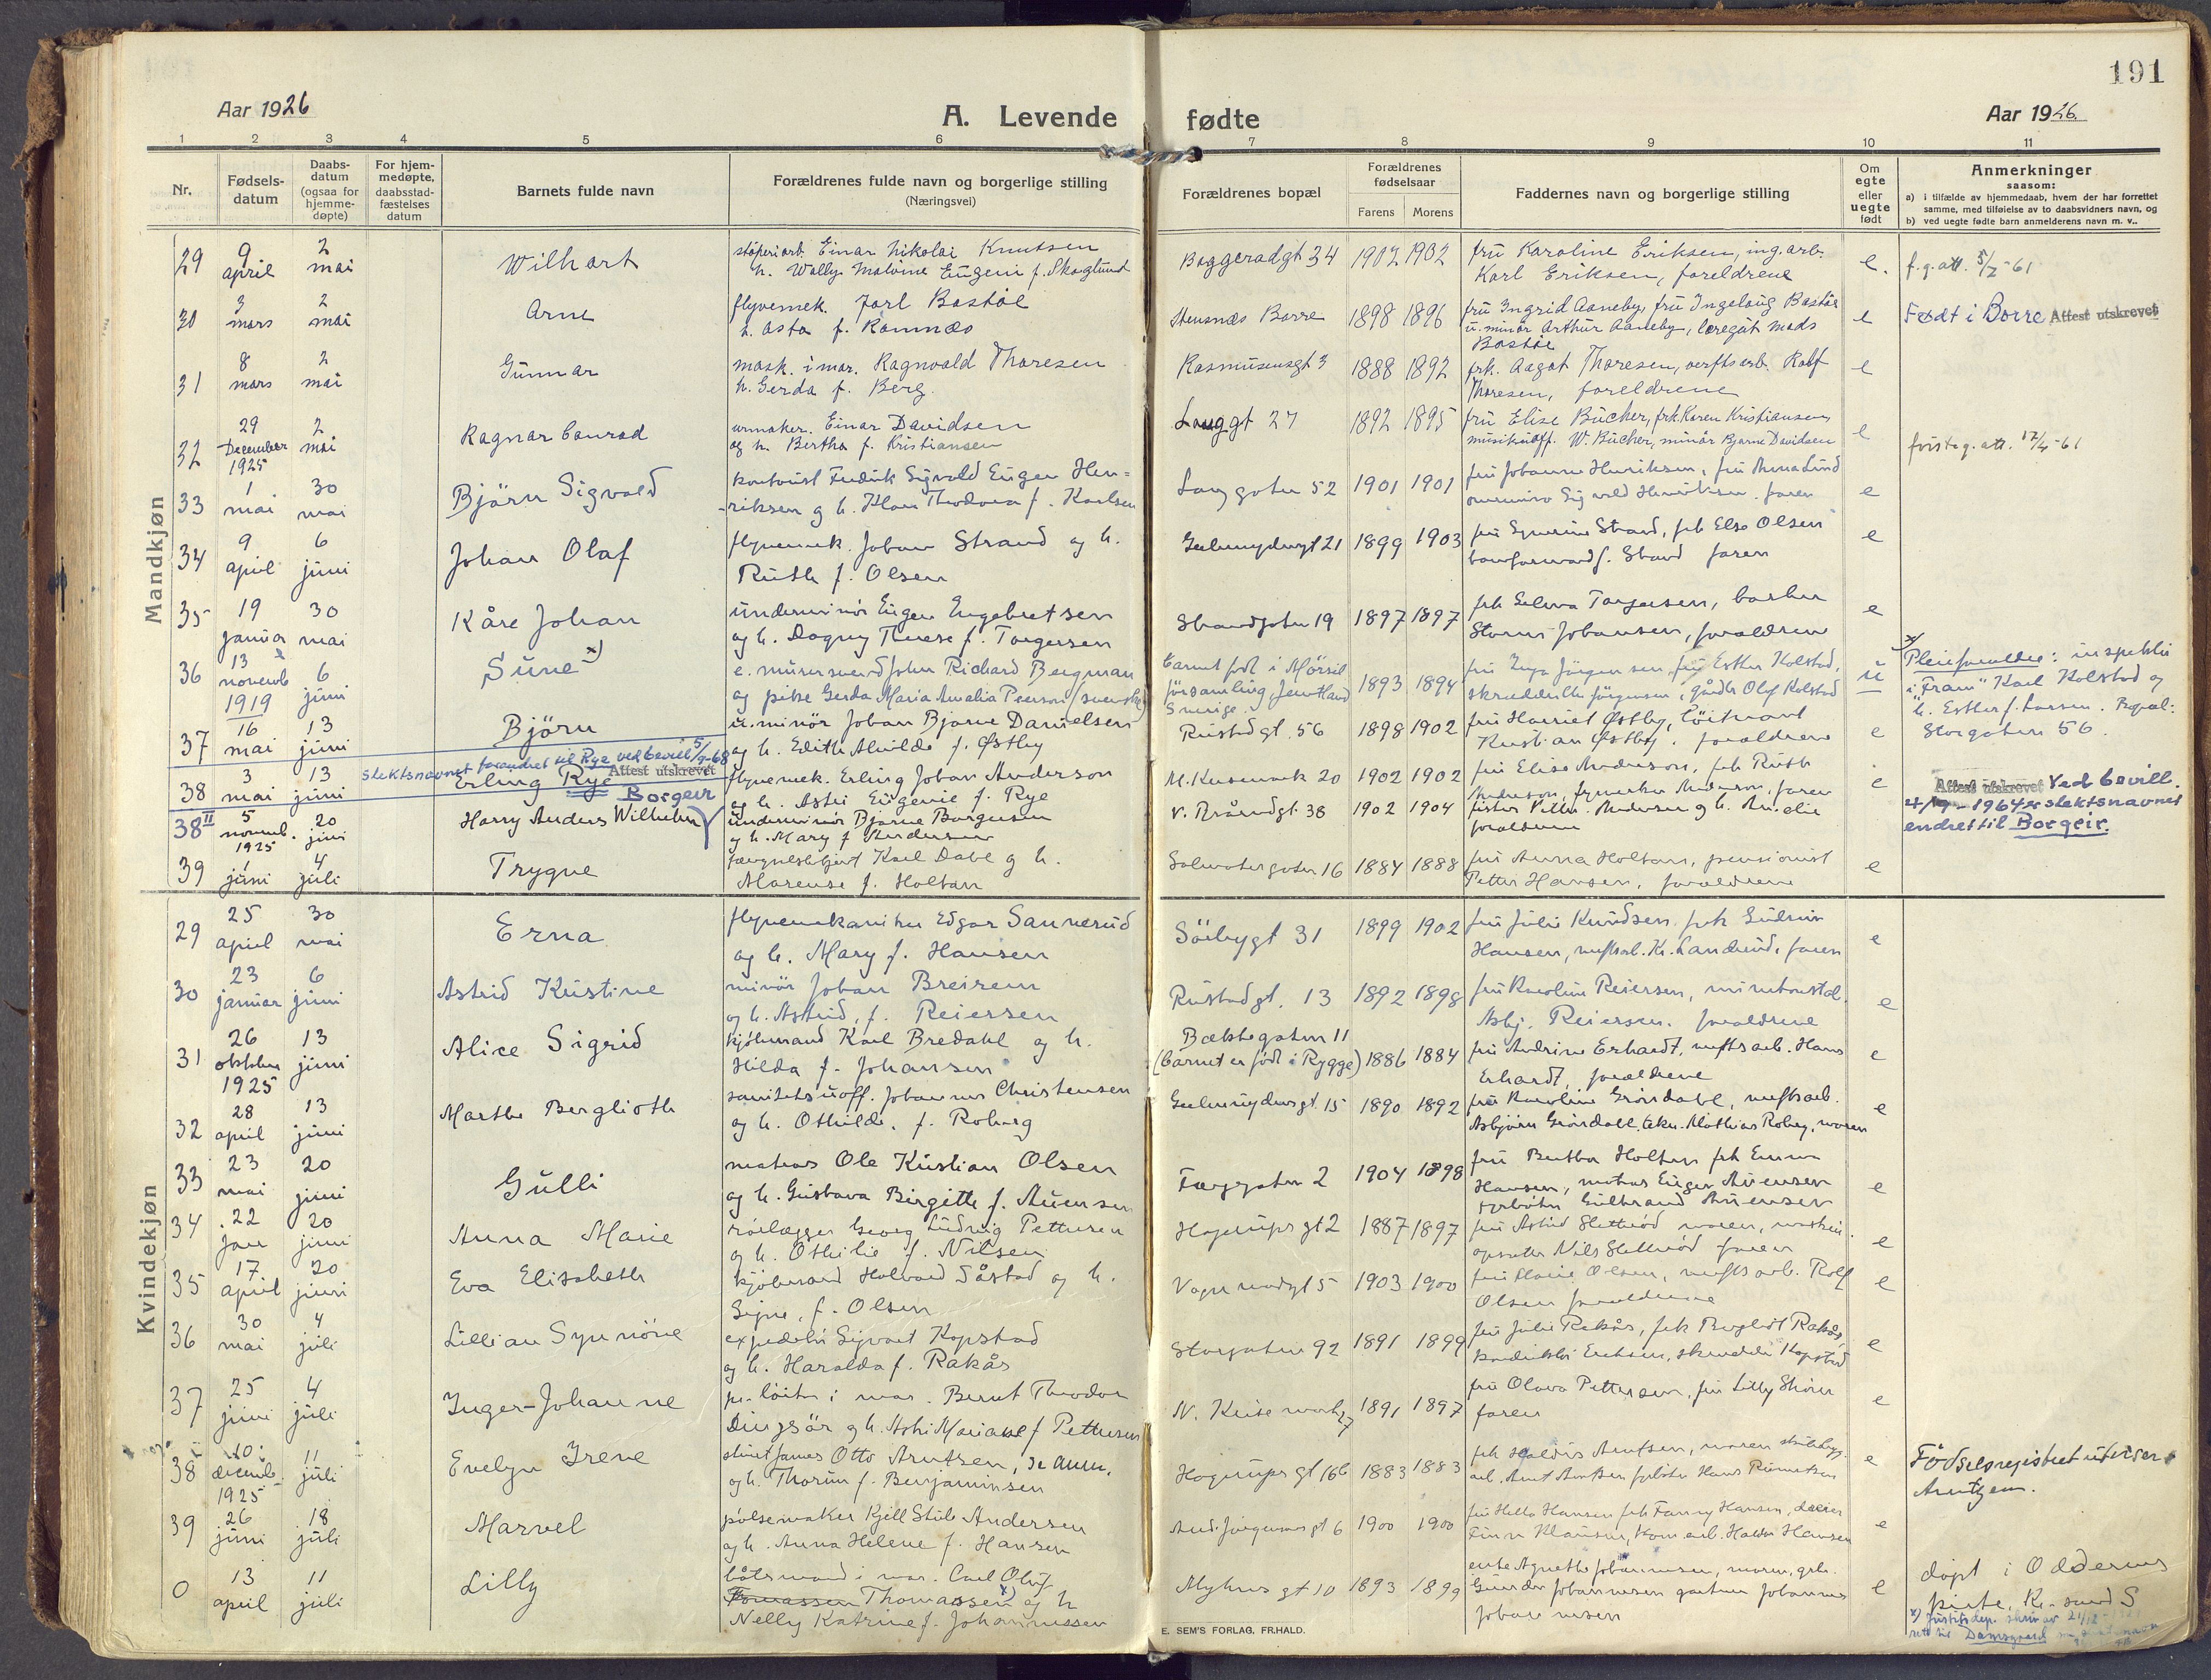 191
Aar 1926
A. Levende fødte
Aar 1926.
1 2 3 4 5 6 7 8 9 10 11
Nr.
Fødsels-
datum
Daabs-
datum
(ogsaa for
hjemme-
døpte)
For hjem-
medøpte,
daabsstad-
fæstelses
datum
Barnets fulde navn
Forældrenes fulde navn og borgerlige stilling
(Næringsvei)
Forældrenes bopæl
Forældrenes
fødselsaar
Farens Morens
Faddernes navn og borgerlige stilling
Om
egte
eller
uegte
født
Anmerkninger
saasom:
a) i tilfælde av hjemmedaab, hvem der har forrettet
samme, med tilføielse av to daabsvidners navn, og
b) ved uegte fødte barn anmelderens navn m. v..
Mandkjøn
29 9 april 2 mai Wilhart
støperiarb. Einar Nikolai Knutsen
h. Wally Malvine Eugeni f. Skoglund
Baggerødgt 34 1902 1902
fru Karoline Eriksen, ing. arb.
Karl Eriksen, foreldrene
e. f.g.att. 61
30 3 mars 2 mai Arne
flyvemek. Jarl Bastøe
h. Asta f. Ramnæs
Borre 1898 1896
fru Ingrid Aaneby, fru Ingelaug Bastøe
u. minør Arthur Aaneby, Mads
Bastøe
e Født i Borre Attest utskrevet
31 8 mars 2 mai Gunnar
mask. i mar. Ragnvald Thoresen
h. Gerda f. Berg.
Rasmusensgt 3 1888 1892
frk. Aagot Thoresen, verftsarb. Rolf
Thoresen, foreldrene
e
32 29 December 1925 2 mai Ragnar Conrad
urmaker. Einar Davidsen
og h. Bertha f. Kristiansen
Langgt 27 1892 1895
fru Elise Bücher, frk. Karen Kristiansen,
W. Bücher, minør Bjarne Davidsen
e att. 17/4-61
33 1 mai 30 mai Bjørn Sigvald
kontorist Fredrik Sigvald Eugen Hen=
-riksen g h. Theodora f. Karlsen
Langgaten 52 1901 1901
fru Johanne Henriksen, fru Anna Lund
Sigvald Henriksen. faren
e
34 9 april 6 juni Johan Olaf
flyvemek. Johan Strand og h.
Ruth f. Olsen
21 1899 1903
fru Strand, frk Else Olsen
Strand faren
e
35 19 januar 30 mai Kåre Johan
underminør Eugen Engebretsen
og h. Dagny Therese f. Torgersen
Strandgaten 19 1897 1897
frk Torgersen, barber
Johansen, forældrene
e
36 13 novemb 1919 6 juni Sune x)
e. murersvend John Richard Bergman
og pike Gerda Maria Amalia Peerson (svenske)
Barnet født i Mörsil
församling Jemtland
Sverige. 1893 1894
fru Inga Jørgensen, fru Esther Kolstad,
Jørgensen, Olaf Kolstad
u
x) Pleieforældre: inspektør
i "Fram" Karl Kolstad og
h. Esther f. Larsen. Bopæl:
Storgaten 56.
37 16 mai 13 juni Bjørn
u. minør Johan Bjarne Danielsen
og h. Edith Alvilde f. Østby
Rustadgt. 56 1898 1902
fru Harriet Østby, løitnant
Kristian Østby, forældrene
e
Slektsnavnet forandret til Rye ved bevill 5/9-68
38 3 mai 13 juni Erling Rye Attest utskrevet
flyvemek. Erling Johan Anderson
og h. Astri Eugenie f. Rye
20 1902 1902
fru Elise Anderson, frk Ruth
Anderson, Anderson, faren
e
38 II 5 novemb. 1925 20 juni Harry Anders Wilhelm Borgeir
underminør Bjarne Borgersen
og h. Mary f. Andersen
38 1902 1904
Andersen g h. Amelie
forældrene
Attest utskrevet Ved bevill.
1964 er slektsnavnet
endret til Borgeir.
39 1 juni 4 juli Trygve
Karl Dahl g h.
Marense f. Holtan
Salvatergaten 16 1884 1888
fru Anna Holtan, pensionist
Petter Hansen, forældrene
e
Kvindekjøn
29 25 april 30 mai Erna
flyvemekaniker Edgar Sannerud
og h. Mary f. Hansen
Søebygt 31 1899 1902
fru Julie Knudsen frk Gudrun
Hansen, verftsarb. Kr. Sannerud, faren
e
30 23 januar 6 juni Astrid Kristine
minør Johan Breirem
og h. Astrid, f. Reiersen
Rustadgt. 13 1892 1898
fru Karoline Reiersen,
Asbj. Reiersen. forældrene
e
31 26 oktober 1925 13 juni Alice Sigrid
kjølmand Karl Bredahl og h.
Hilda f. Johansen
Bækkegaten 11
(barnet er født i Rygge) 1886 1884
fru Andrine Erhardt, verftsarb. Hans
Erhardt, forældrene
e
32 28 april 13 juni Marthe Berglioth
sanitetsuoff. Johannes Christensen
og h. Othilde, f. Roberg
15 1890 1892
fru Karoline Grøndahl, verftsarb.
Asbjørn Grøndahl, Mathias Roberg, moren
e
33 23 mai 20 juni Gulli
matros Ole Kristian Olsen
og h. Gustava Birgitte f. Auensen
2 1904 1898
fru Bertha Holten frk Emma
Hansen, matros Eugen Auensen
Gulbrand Auensen
e
34 22 jan 20 juni Anna Marie
rørlægger Georg Ludvig Pettersen
og h. Othilie f. Nilsen
Hagerupsgt 2 1887 1897
fru Astrid Slettrød moren, maskin.
Nils Slettrød faren
e
35 17 april 20 juni Eva Elisabeth
kjølmand Halvard Såstad og h.
Signe, f. Olsen
5 1903 1900
fru Olsen, verftsarb. Rolf
Olsen forældrene
e
36 30 mai 4 juli Lillian Synnöve
expeditør Sigvart Kopstad
og h. Haralda f. Rakås
Storgaten 92 1891 1899
fru Julie Rakås, frk Bergliot Rakås,
Eriksen, Kopstad
e
37 25 juni 4 juli Inger-Johanne
pr. løitn i mar. Bernt Theodor
Dingsør g h. Astri Mariane f Pettersen
27 1891 1897
fru Olava Pettersen, fru Lilly
faren
e
38 10 decemb. 1925 11 juli Evelyn Irene
James Otto Arntsen, se anm.
og h. Thorun f. Benjaminsen
Hagerupsgt 16b 1883 1883
frk Haldis Arntsen, moren
arb. Arnt Arntsen Hans
e
Fødselsregistret utviser
Arntzen.
39 26 juni 18 juli Marvel
pølsemaker Kjell Stub Andersen
og h. Anna Helene f. Hansen
And. Jørgensensgt 6 1900 1900
fru Helle Hansen frk Fanny Hansen,
Finn Klausen, kom. arb. Haldor Hansen
e
0 13 april 11 juli Lilly
båtsmand i mar. Carl Oluf
Tomassen Thomassen x) og h
Nelly Katrine f. Johannessen
Myhresgt 10 1893 1899
enke Agnethe Johannesen, moren,
Gunder Johannesen gartner Johannes
Johannesen
e
døpt i Oddernes
kirke, Kr.-sand S
x) Justitsdep. skriv av 21/12
E. SEM'S FORLAG, FR.HALD.